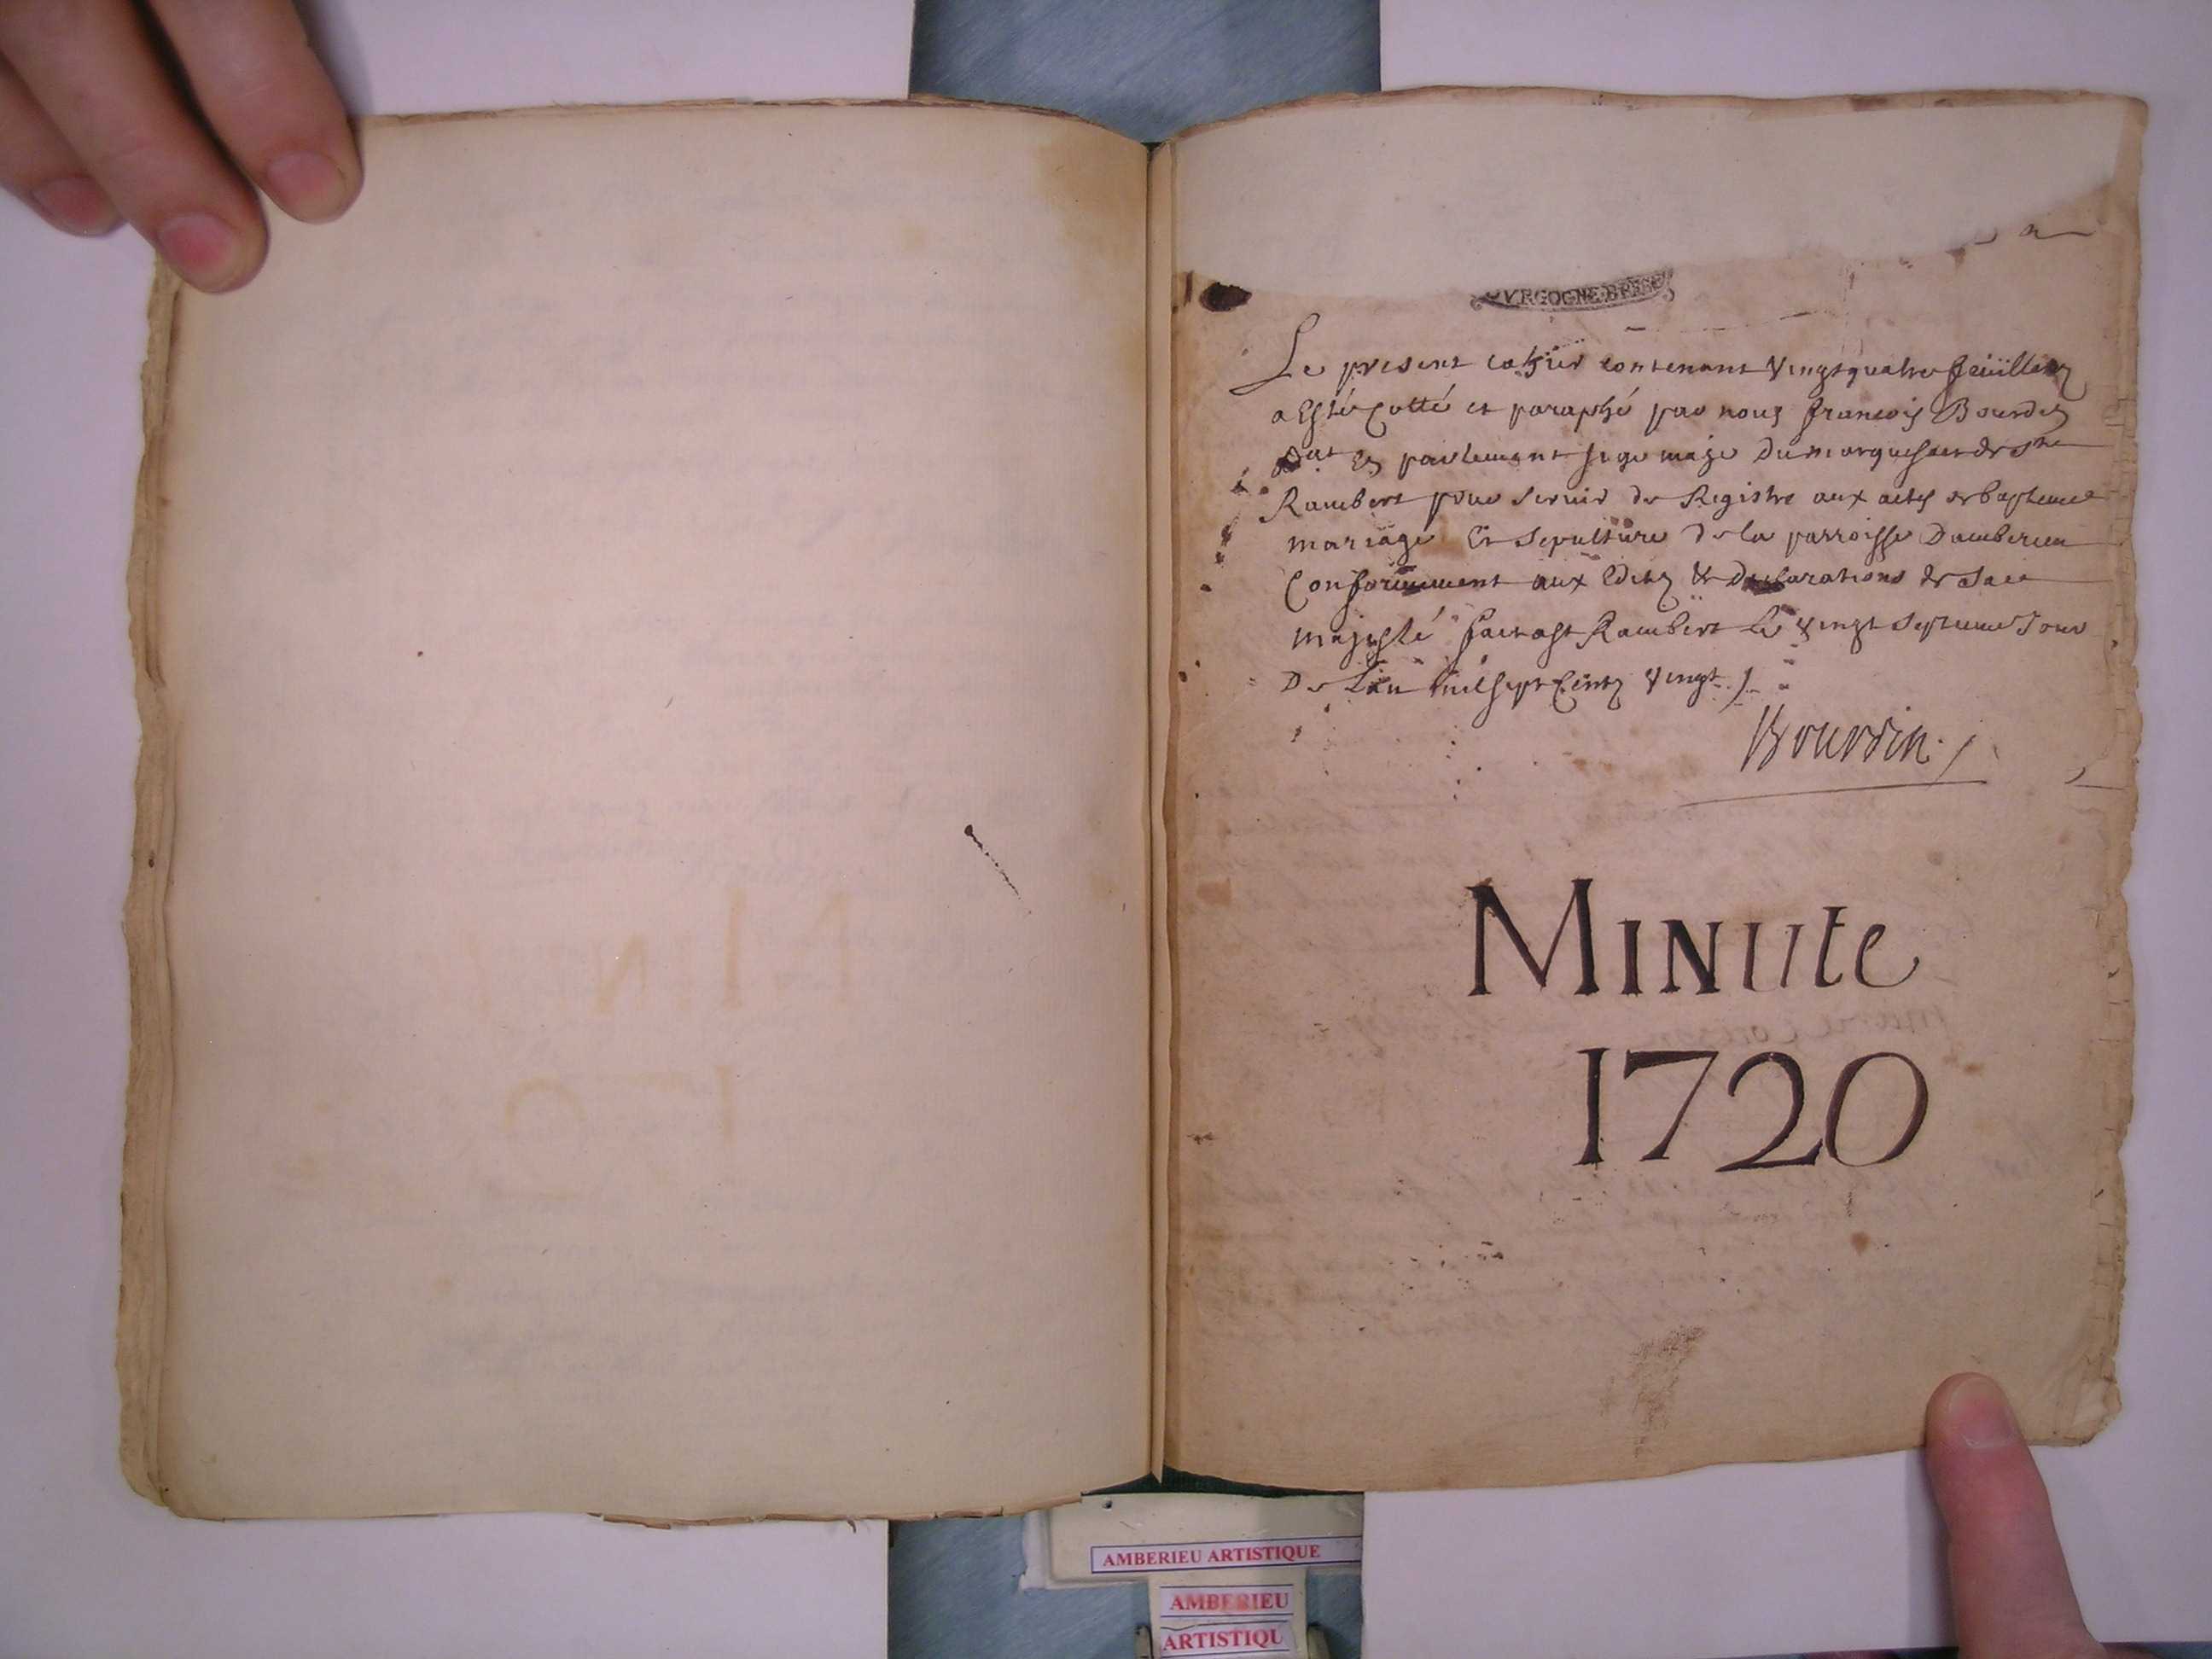 OVRGOGNE·BRESSE
Le present cahier contenant vingt quatre feüilletz
a Esté Cotté et paraphé par nous francois Bourdin
En parlement juge maje du marquisat de St
Rambert pour servir de Registre aux actes de bapteme
mariage Et sepulture de la parroisse Damberieu
Conformement aux Edits & Declarations de sa
majesté fait a St Rambert le vingt septieme Jour
De L'an mil sept Centz vingt
Bourdin
MINUte
1720
AMBERIEU ARTISTIQUE
AMBERIEU
ARTISTIQU